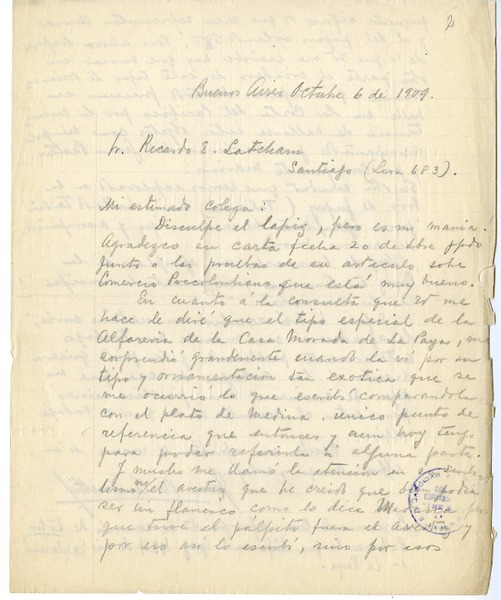 2
Buenos Aires Octubre 6 de 1909.
Sr. Ricardo E. Latcham
Santiago (Lira 683).
Mi estimado colega:
Disculpe el lapiz, pero es mi manía.
Agradezco su carta fecha 20 de ppdo
junto á las pruebas de su artículo sobre
Comercio Precolombiano que está muy bueno.
En cuanto á la consulta que Vd me
hace le diré que el tipo especial de la
Alfarería de la Casa Morada de la Paya, me
sorprendió grandemente cuando la ví por su
tipo y ornamentacion tan exotica que se
me ocurrió lo que escribí comparandola
con el plato de Medina. unico punto de
referencia que entonces y aun hoy tengo
para poder referirla á alguna parte.
Y mucho me llamó la atencion
el avestruz que he creido que
ser un flamenco como lo dice
que tuve el palpito fuera el
por eso así lo escribí, sino por esos